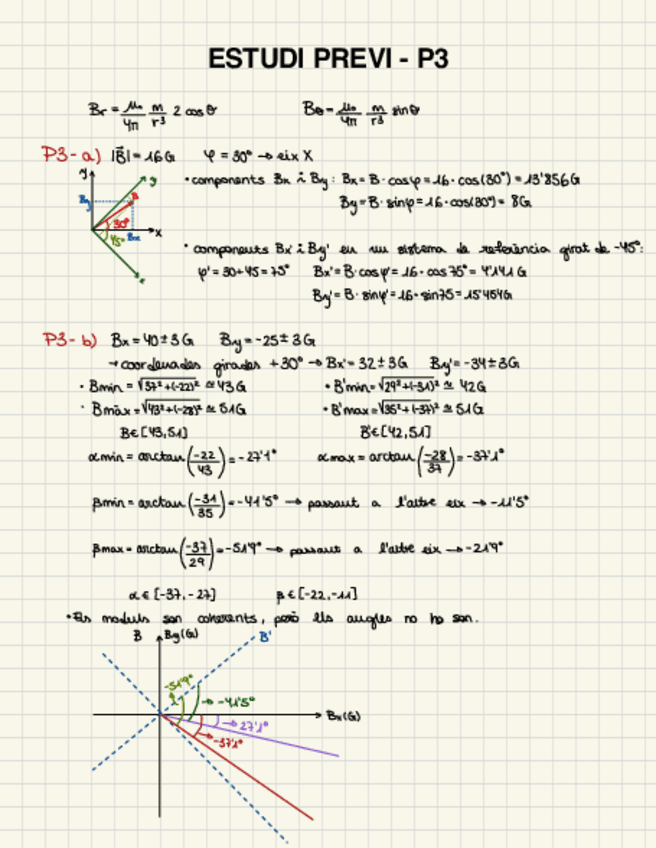 ESTUDI PREVI - P3
Br = μ₀/4π m/r³ 2 cosθ    Bθ = μ₀/4π m/r³ sinθ
P3-a) |B⃗| = 16G    φ = 30° → eix X
• components Bx i By: Bx = B·cosφ = 16·cos(30°) = 13'856G
By = B·sinφ = 16·cos(30) = 8G
y y B By 30° 45° Bx x x
• components Bx' i By' en un sistema de referència girat de -45°:
φ' = 30+45 = 75°    Bx' = B·cosφ' = 16·cos75° = 4'141G
By' = B·sinφ' = 16·sin75 = 15'454G
P3-b) Bx = 40±3G    By = -25±3G
→ coordenades girades +30° → Bx' = 32±3G    By' = -34±3G
• Bmin = √37²+(-22)² ≅ 43G    • B'min = √29²+(-31)² ≅ 42G
• Bmàx = √43²+(-28)² ≅ 51G    • B'max = √35²+(-37)² ≅ 51G
B∈[43,51]    B'∈[42,51]
αmin = arctan(-22/43) = -27'1°    αmax = arctan(-28/37) = -37'1°
βmin = arctan(-31/35) = -41'5° → passant a l'altre eix → -11'5°
βmax = arctan(-37/29) = -51'9° → passant a l'altre eix → -21'9°
α∈[-37,-27]    β∈[-22,-11]
• Els moduls son coherents, però els angles no ho son.
B By(G) B'
-51'9°
→ -41'5°
Bx(G)
→ 27'1°
→ -37'1°